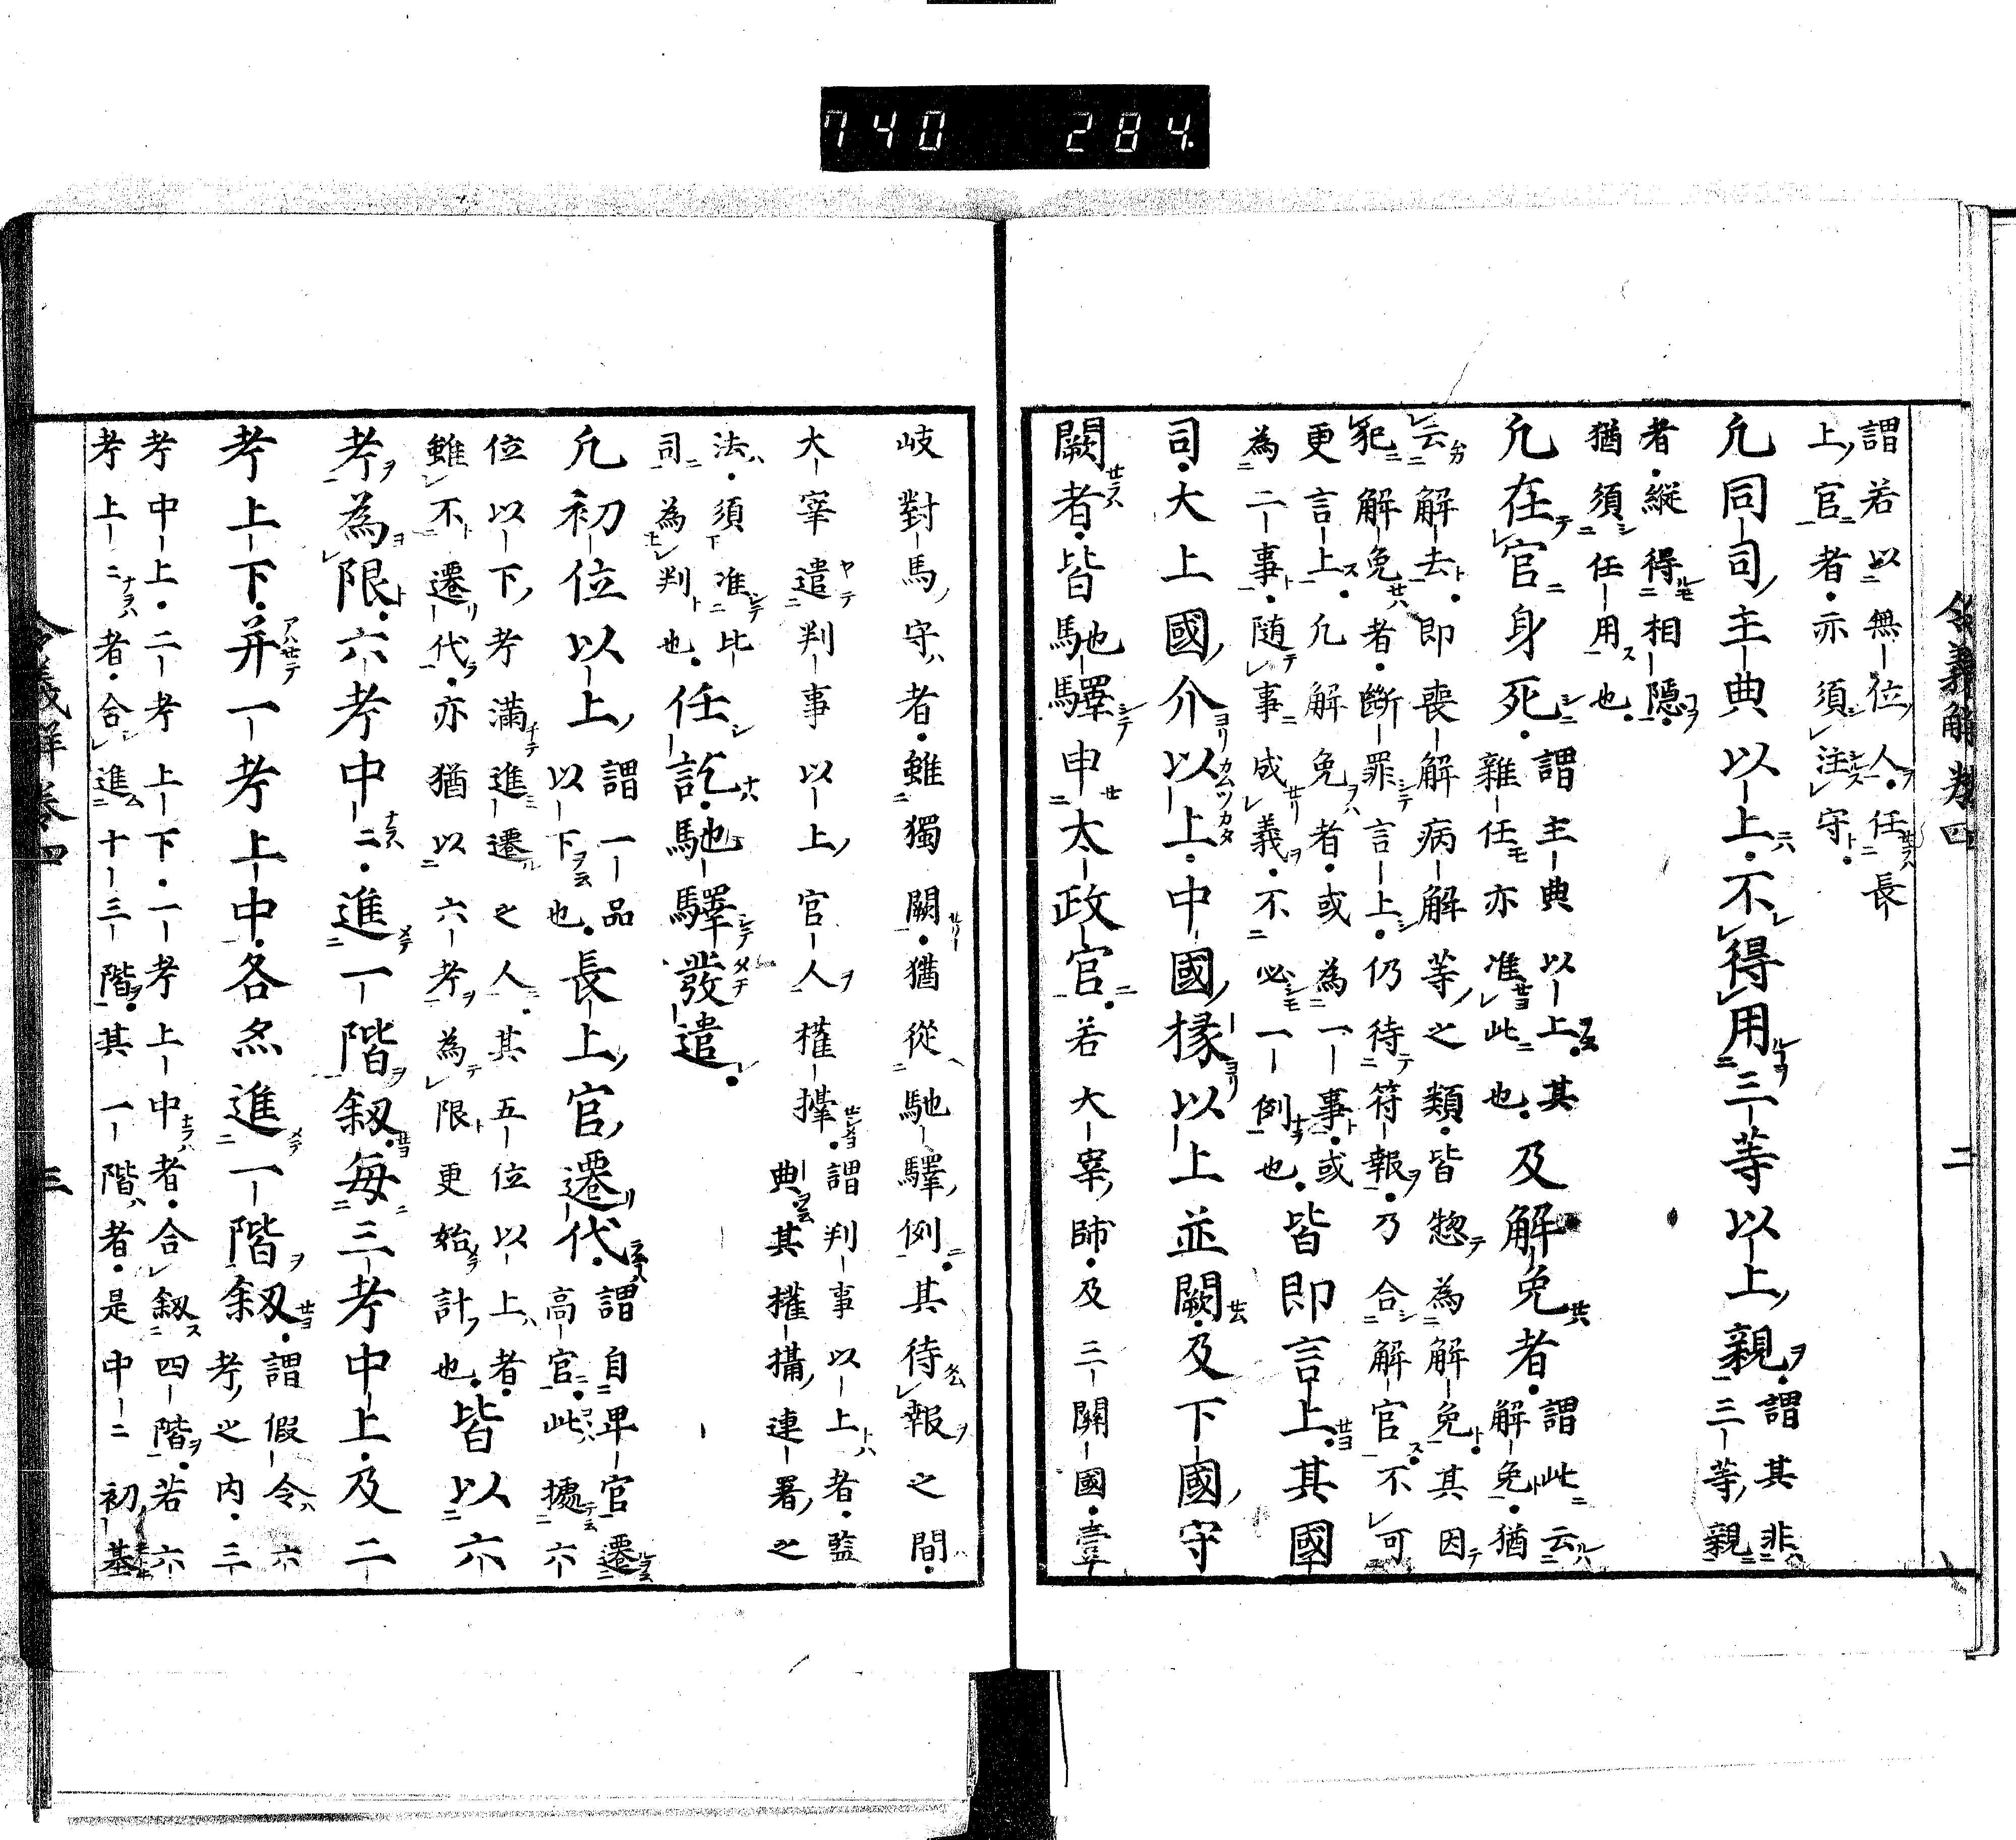 740 284
令義解卷四 二
謂若以無位人任長
上官者亦須注守
凢同司主典以上不得用三等以上親謂其非
三等親
者縱得相隱
猶須任用也
凢在官身死謂主典以上其
雜任亦准此也及解免者謂此云
解免猶
云解去即喪解病解等之類皆惣為解免其因
犯解免者斷罪言上仍待符報乃合解官不可
更言上凢解免者或為一事或
為二事随事成義不必一例也皆即言上其國
司大上國介以上中國掾以上並闕及下國守
闕者皆馳驛申太政官若大宰師及三關國壹
岐對馬守者雖獨闕猶從馳驛例其待報之間
大宰遣判事以上官人權攝謂判事以上者監
典其權攝連署之
法須准比
司為判也任訖馳驛發遣
凢初位以上謂一品
以下也長上官遷代謂自卑官遷
高官此據六
位以下考滿進遷之人其五位以上者
雖不遷代亦猶以六考為限更始計也皆以六
考為限六考中二進一階敘每三考中上及二
考上下并一考上中各亦進一階敘謂假令六
考之内三
考中上二考上下一考上中者合敘四階若六
考上二者合進十三階其一階者是中二初基
令義解卷四 三